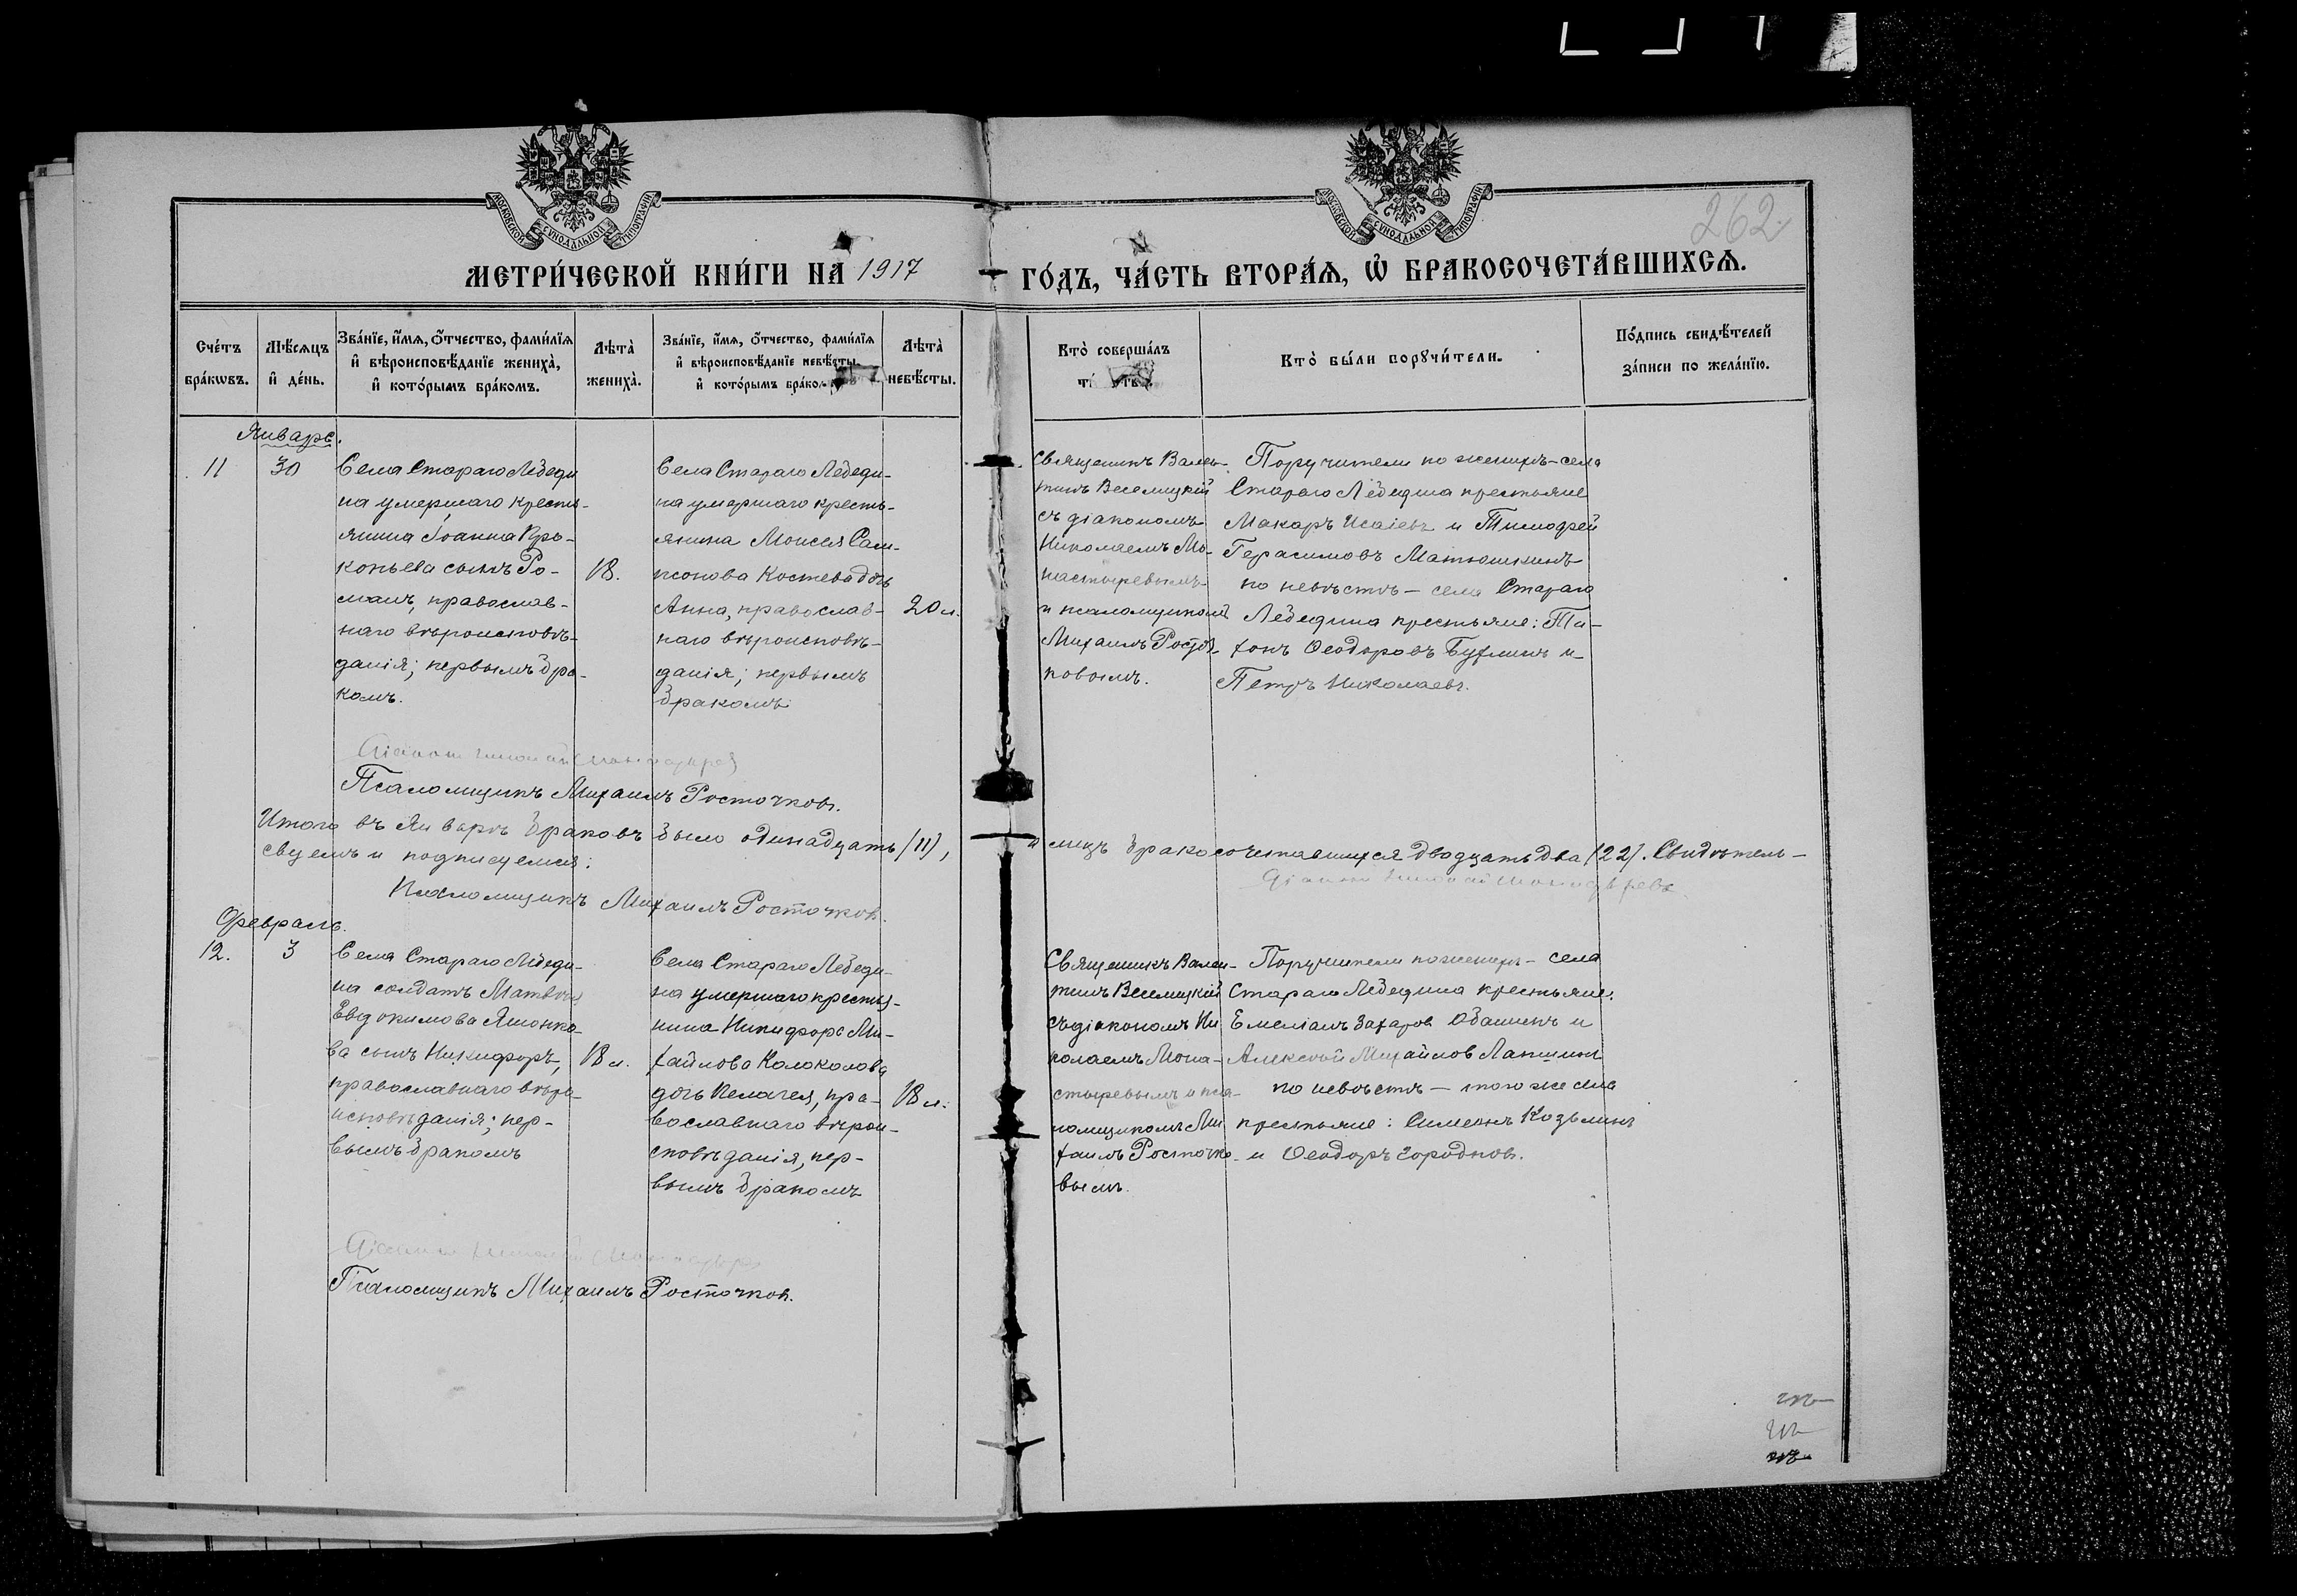 262
МЕТРИ́ЧЕСКОЙ КНИ́ГИ НА 1917 ГО́ДЪ, ЧА́СТЬ ВТОРА́Я, Ѡ БРАКОСОЧЕТА́ВШИХСЯ.
Сче́тъ бра́кѡвъ.
Мѣ́сяцъ и де́нь.
Зва́нїе, и́мя, о́тчество, фами́лїя
и вѣроисповѣ́данїе жениха̀,
и кото́рымъ бра́комъ.
Лѣта̀ жениха̀.
Зва́нїе, и́мя, о́тчество, фами́лїя
и вѣроисповѣ́данїе невѣ́сты,
и кото́рымъ бра́ком
Лѣта̀ невѣ́сты.
Кто̀ соверша́лъ
Кто̀ бы́ли порꙋчи́тели.
По́дпись свидѣ́телей
за́писи по жела́нїю.
Январь.
11
30
Села Стараго Лебеди
на умершаго кресть-
янина Іоанна Про-
копьева сынъ Ро-
манъ, православ-
наго вѣроисповѣ-
данія; первымъ бра-
комъ.
18.
Села Стараго Лебеди-
на умершаго кресть-
янина Моисея Сам-
псонова Костева дочь
Анна, православ-
наго вѣроисповѣ-
данія; первымъ
бракомъ
20 л.
Священникъ Вален-
тинъ Веселицкій
съ діакономъ
Николаемъ Мо-
настыревымъ
и псаломщикомъ
Михаиломъ Росточ-
ковымъ.
Поручители по женихѣ – села
Стараго Лебедина крестьяне
Макаръ Исаіевъ и Тимофей
Герасимовъ Матюшкинъ
по невѣстѣ – села Стараго
Лебедина крестьяне: Ти-
хонъ Ѳеодоровъ Бухлинъ и
Петръ Николаевъ.
Діаконъ Николай Монастырев
Псаломщикъ Михаилъ Росточков.
Итого въ Январѣ браковъ было одинадцать (11), и лицъ бракосочетавшихся двадцать два (22). Свидѣтель-
свуемъ и подписуемся:
Діаконъ Николай Монастыревъ
Псаломщикъ Михаилъ Росточков.
Февраль.
12.
3
Села Стараго Лебеди-
на солдатъ Матвѣя
Евдокимова Ямонко-
ва сынъ Никифоръ,
православнаго вѣро-
исповѣданія; пер-
вымъ бракомъ
18 л.
Села Стараго Лебеди-
на умершаго крестья-
нина Никифора Ми-
хайлова Колоколова
дочь Пелагея, пра-
вославнаго вѣрои-
сповѣданія, пер-
вымъ бракомъ
18 л.
Священникъ Вален-
тинъ Веселицкій
съ діакономъ Ни
колаемъ Мона-
стыревымъ и пса-
ломщикомъ Ми
хаилъ Росточко-
вымъ.
Поручители по женихѣ – села
Стараго Лебедина крестьяне:
Емеліанъ Захаров Абашинъ и
Алексѣй Михайлов Лапшин
по невѣстѣ – того же села
крестьяне: Симеонъ Козьминъ
и Ѳеодоръ Городнов.
Діаконъ Николай Монастырев
Псаломщикъ Михаилъ Росточков.